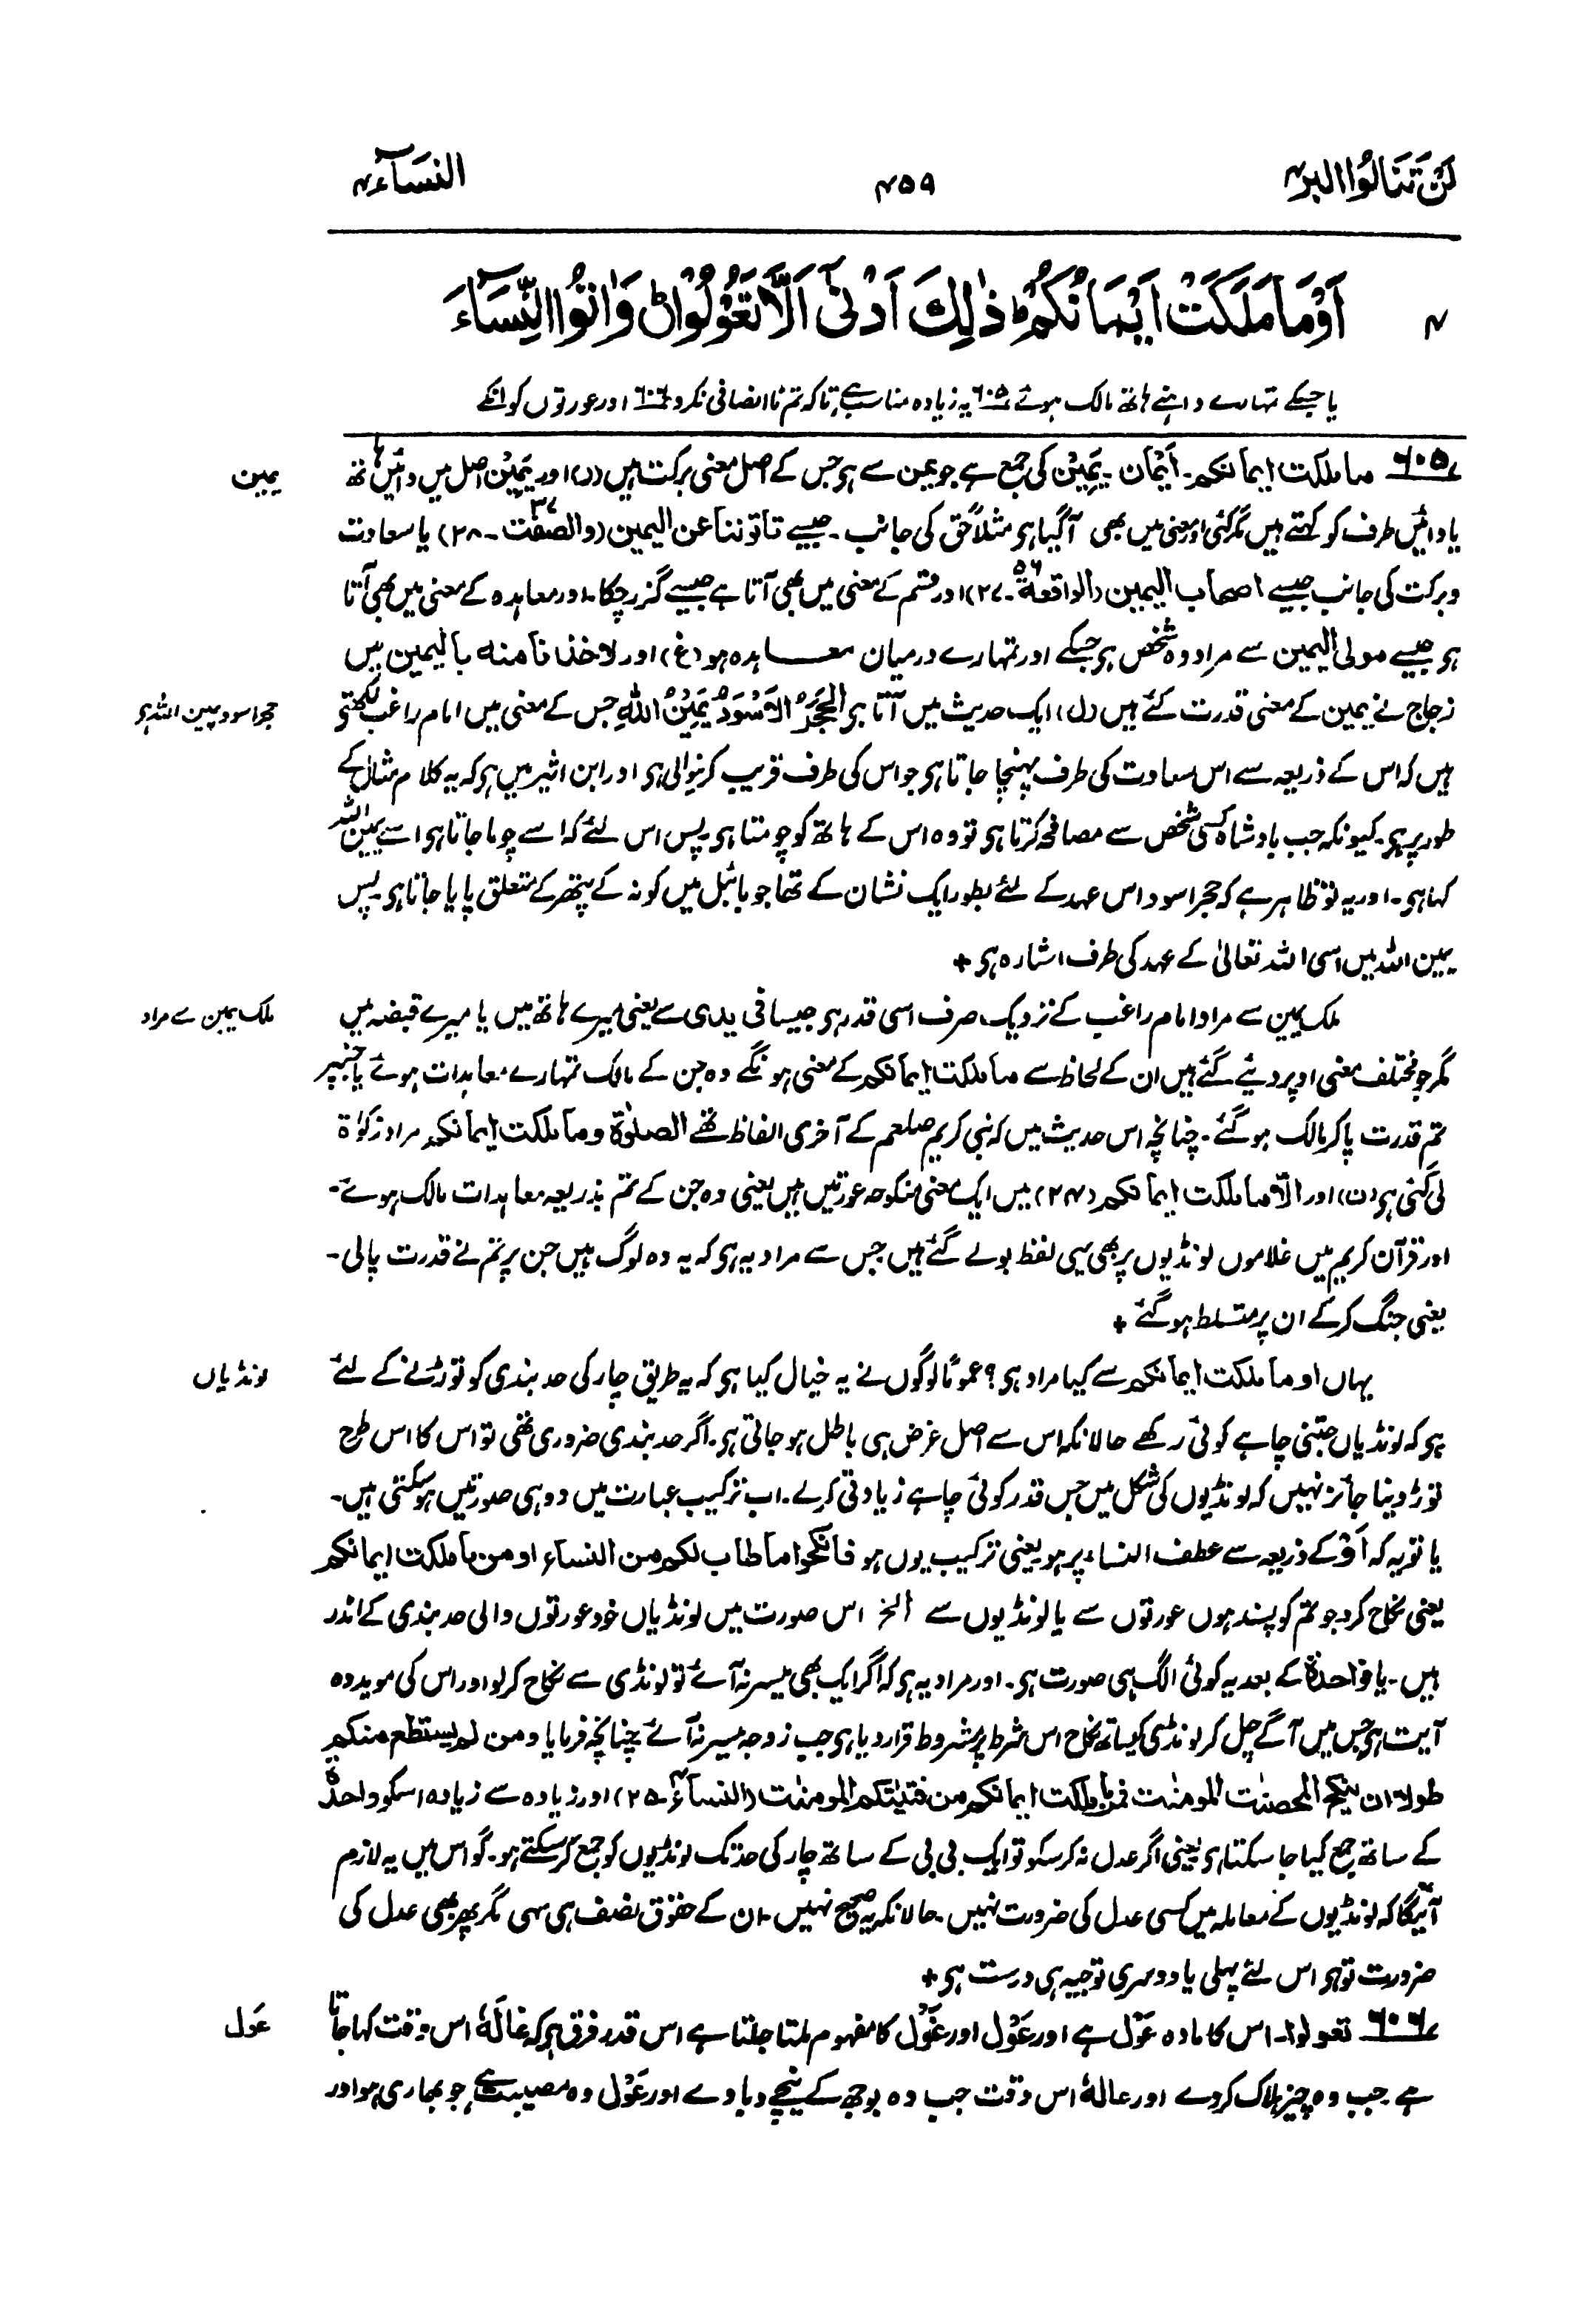 لَنْ تَنَالُوا البر۴
۴۵۹
النِّسَآء۴
۴
اَوْ مَا مَلَكَتْ اَيْمَانُكُمْ ؕ ذٰلِكَ اَدْنٰۤى اَلَّا تَعُوْلُوْا ؕ وَاٰتُوا النِّسَآءَ
یا جسکے تمہارے داہنے ہاتھ مالک ہوئے ۶۰۵ یہ زیادہ مناسب ہے تاکہ تم ناانصافی نکرو ۶۰۶ اور عورتوں کو انکے
۶۰۵ ما ملکت ایمانکم۔ اَیْمَان ۔ یَمِیْن کی جمع ہے جو یمن سے ہی جس کے اصل معنی برکت ہیں (ر) اور یَمِیْن اصل میں دائیں ہاتھ
یمین
یا دائیں طرف کو کہتے ہیں مگر کئی اور معنی میں بھی آگیا ہی مثلاً حق کی جانب ۔ جیسے تاتوننا عن الیمین (والصّٰفّٰت۳۷ ۔ ۲۸) یا سعادت
و برکت کی جانب جیسے اصحاب الیمین (الواقعة۵۶ ۔ ۲۷) اور قسم کے معنی میں بھی آتا ہے جیسے گزر چکا۔ اور معاہدہ کے معنی میں بھی آتا
ہی جیسے مولی الیمین سے مراد وہ شخص ہی جسکے اور تمہارے درمیان معاہدہ ہو (غ) اور لاخذنا منہ بالیمین میں
زجاج نے یمین کے معنی قدرت کئے ہیں (ل) ایک حدیث میں آتا ہی الحَجَرُ الاَسْوَدُ یَمِیْنُ اللہِ جس کے معنی میں امام راغب لکھتے
حجر اسود یمین اللہ ہی
ہیں کہ اس کے ذریعہ سے اس سعادت کی طرف پہنچا جاتا ہی جو اس کی طرف قریب کرنیوالی ہی اور ابن اثیر میں ہی کہ یہ کلام مثال کے
طور پر ہی۔ کیونکہ جب بادشاہ کسی شخص سے مصافحہ کرتا ہی تو وہ اس کے ہاتھ کو چومتا ہی۔ پس اس لئے کہ اسے چوما جاتا ہی اسے یمین اللہ
کہا ہی۔ اور یہ تو ظاہر ہے کہ حجر اسود اس عہد کے لئے بطور ایک نشان کے تھا جو بائبل میں کونہ کے پتھر کے متعلق پایا جاتا ہی۔ پس
یمین اللہ میں اسی اللہ تعالیٰ کے عہد کی طرف اشارہ ہی +
ملک یمین سے مراد امام راغب کے نزدیک صرف اسی قدر ہی جیسا فی یدی سے یعنی میرے ہاتھ میں یا میرے قبضہ میں
ملک یمین سے مراد
مگر جو مختلف معنی اوپر دیئے گئے ہیں ان کے لحاظ سے ما ملکت ایمانکم کے معنی ہونگے وہ جن کے مالک تمہارے معاہدات ہوئے یا جنپر
تم قدرت پا کر مالک ہو گئے ۔ چنانچہ اس حدیث میں کہ نبی کریم صلعم کے آخری الفاظ تھے الصلوٰة وما ملکت ایمانکم مراد زکوٰة
لی گئی ہی (ن) اور الّا ما ملکت ایمانکم (۲۴) میں ایک معنی منکوحہ عورتیں ہیں یعنی وہ جن کے تم بذریعہ معاہدات مالک ہوئے۔
اور قرآن کریم میں غلاموں لونڈیوں پر بھی یہی لفظ بولے گئے ہیں جس سے مراد یہ ہی کہ یہ وہ لوگ ہیں جن پر تم نے قدرت پالی۔
یعنی جنگ کرکے ان پر متسلط ہو گئے +
یہاں او ما ملکت ایمانکم سے کیا مراد ہی؟ عموماً لوگوں نے یہ خیال کیا ہی کہ یہ طریق چار کی حد بندی کو توڑنے کے لئے
لونڈیاں
ہی کہ لونڈیاں جتنی چاہے کوئی رکھے حالانکہ اس سے اصل غرض ہی باطل ہو جاتی ہی۔ اگر حد بندی ضروری تھی تو اس کا اس طرح
توڑ دینا جائز نہیں کہ لونڈیوں کی شکل میں جس قدر کوئی چاہے زیادتی کرلے۔ اب ترکیب عبارت میں دو ہی صورتیں ہو سکتی ہیں۔
یا تو یہ کہ اَوْ کے ذریعہ سے عطف النساء پر ہو یعنی ترکیب یوں ہو فانکحوا ما طاب لکم من النساء او من ما ملکت ایمانکم
یعنی نکاح کرو جو تم کو پسند ہوں عورتوں سے یا لونڈیوں سے الخ اس صورت میں لونڈیاں خود عورتوں والی حد بندی کے اندر
ہیں ۔ یا فواحدة کے بعد یہ کوئی الگ ہی صورت ہی۔ اور مراد یہ ہی کہ اگر ایک بھی میسر نہ آئے تو لونڈی سے نکاح کرلو اور اس کی موید وہ
آیت ہی جس میں آگے چل کر لونڈی کیساتھ نکاح اس شرط پر مشروط قرار دیا ہی جب زوجہ میسر نہ آئے چنانچہ فرمایا ومن لم یستطع منکم
طولا ان ینکح المحصنٰت المومنٰت فمن ما ملکت ایمانکم من فتیٰتکم المومنٰت (النساۤء۴۔۲۵) اور زیادہ سے زیادہ اسکو واحدة
کے ساتھ جمع کیا جا سکتا ہی یعنی اگر عدل نہ کر سکو تو ایک بی بی کے ساتھ چار کی حد تک لونڈیوں کو جمع کر سکتے ہو۔ گو اس میں یہ لازم
آئیگا کہ لونڈیوں کے معاملہ میں کسی عدل کی ضرورت نہیں۔ حالانکہ یہ صحیح نہیں۔ ان کے حقوق نصف ہی سہی مگر پھر بھی عدل کی
ضرورت تو ہی اس لئے پہلی یا دوسری توجیہ ہی درست ہی +
۶۰۶ تعولوا۔ اس کا مادہ عَوْل ہے اور عَوْل اور غَوْل کا مفہوم ملتا جلتا ہے اس قدر فرق ہی کہ غَالَهٗ اس وقت کہا جاتا
عَول
ہے جب وہ چیز ہلاک کردے اور عالهٗ اس وقت جب وہ بوجھ کے نیچے دباوے اور عَوْل وہ مصیبت ہے جو بھاری ہو اور